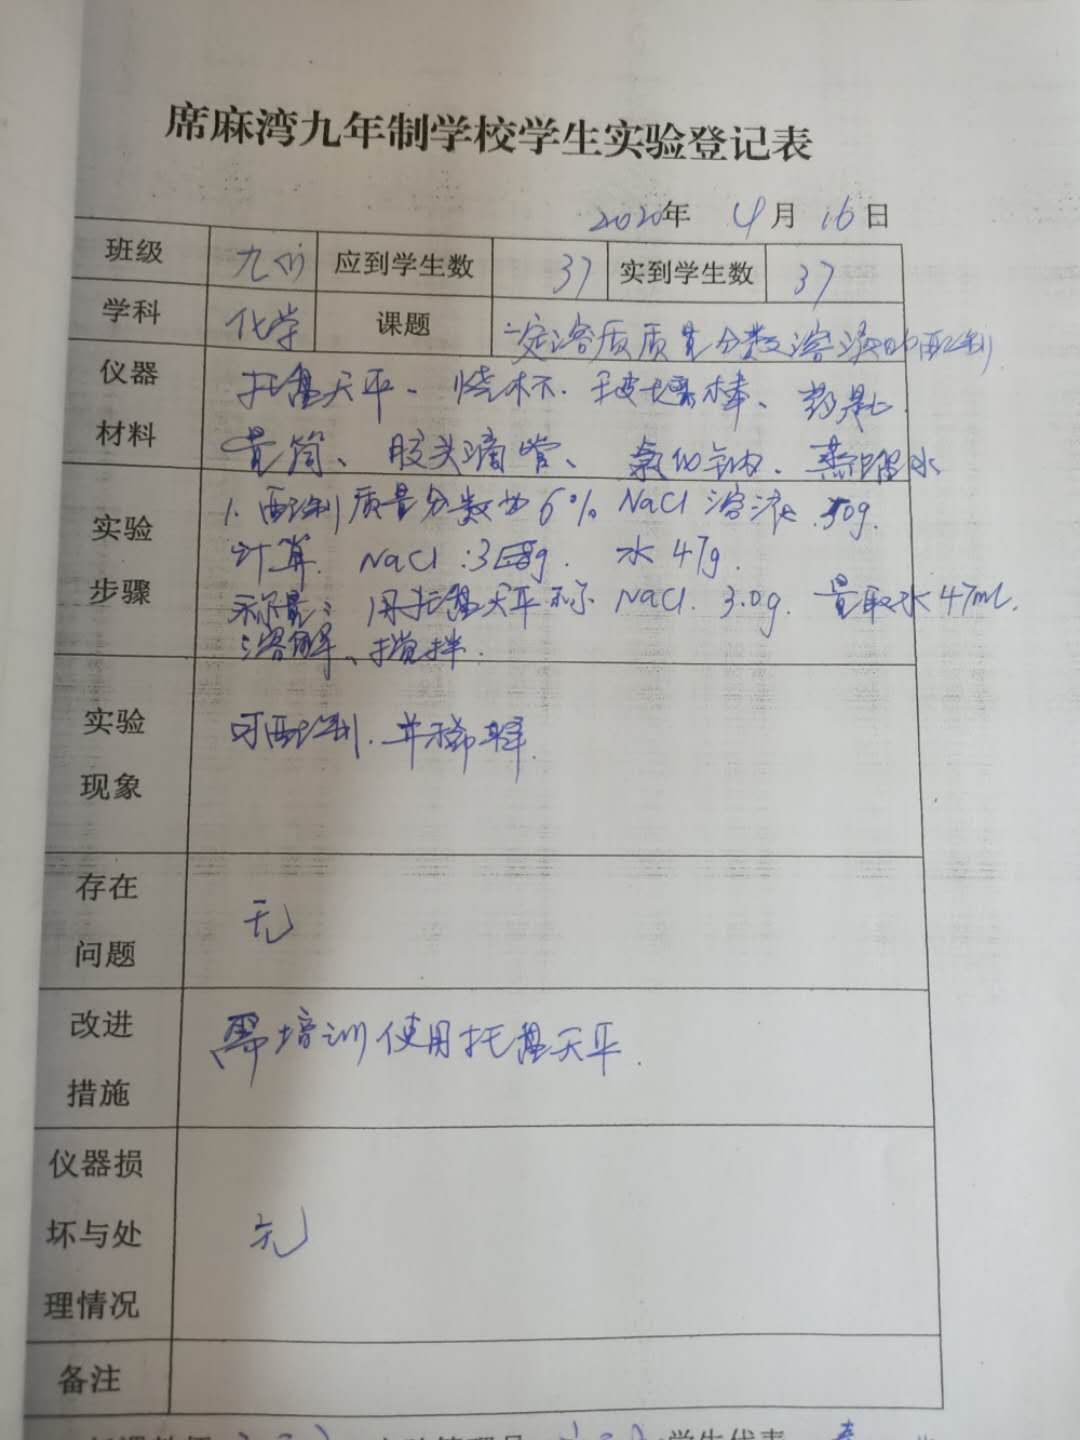 席麻湾九年制学校学生实验登记表
2020年 4月 16日
班级 九(1) 应到学生数 37 实到学生数 37
学科 化学 课题 一定溶质质量分数溶液的配制
仪器材料 托盘天平、烧杯、玻璃棒、药匙
量筒、胶头滴管、氯化钠、蒸馏水
实验步骤 1. 配制质量分数为6% NaCl 溶液 50g.
计算. NaCl:3g. 水 47g.
称量: 用托盘天平称 NaCl. 3.0g. 量取水 47mL.
溶解、搅拌.
实验现象 可配制. 并稀释.
存在问题 无
改进措施 需培训使用托盘天平.
仪器损坏与处理情况 无
备注
学生代表